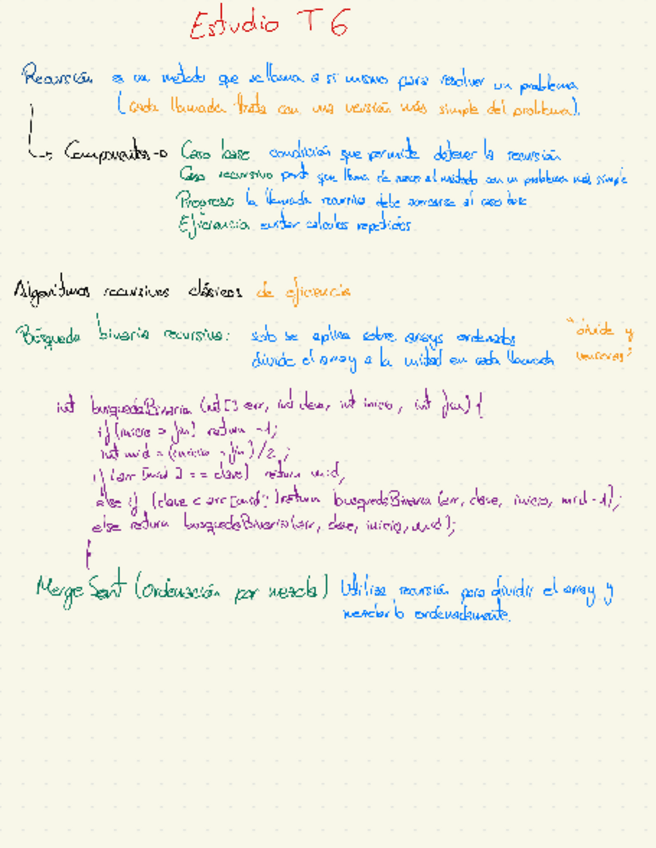 Estudio T6
Recursión es un método que se llama a si mismo para resolver un problema
(cada llamada trata con una versión más simple del problema).
Componentes → Caso base condición que permite detener la recursión
Caso recursivo parte que llama de nuevo al método con un problema más simple
Progreso la llamada recursiva debe acercarse al caso base
Eficiencia evitar calculos repetidos
Algoritmos recursivos clásicos de eficiencia
Búsqueda binaria recursiva: solo se aplica sobre arrays ordenados "divide y
divide el array a la mitad en cada llamada venceras"
int busquedaBinaria (int[] arr, int clave, int inicio, int fin) {
if (inicio > fin) return -1;
int mid = (inicio + fin) /2;
if (arr [mid] == clave) return mid;
else if (clave < arr[mid]) return busquedaBinaria (arr, clave, inicio, mid -1);
else return busquedaBinaria(arr, clave, inicio, mid);
}
Merge Sort (Ordenación por mezcla) Utiliza recursión para dividir el array y
mezclarlo ordenadamente.